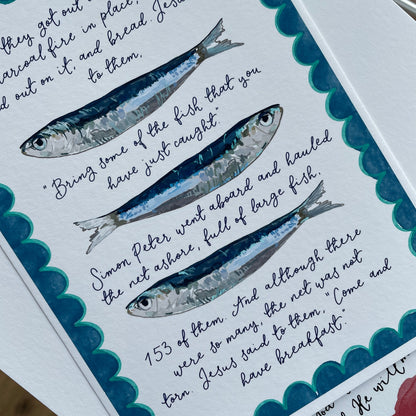 they got out
charcoal fire in place,
out on it, and bread. Jesus
to them.
"Bring some of the fish that you
have just caught."
Simon Peter went aboard and hauled
the net ashore, full of large fish,
153 of them. And although there
were so many, the net was not
torn. Jesus said to them, "Come and
have breakfast."
He will